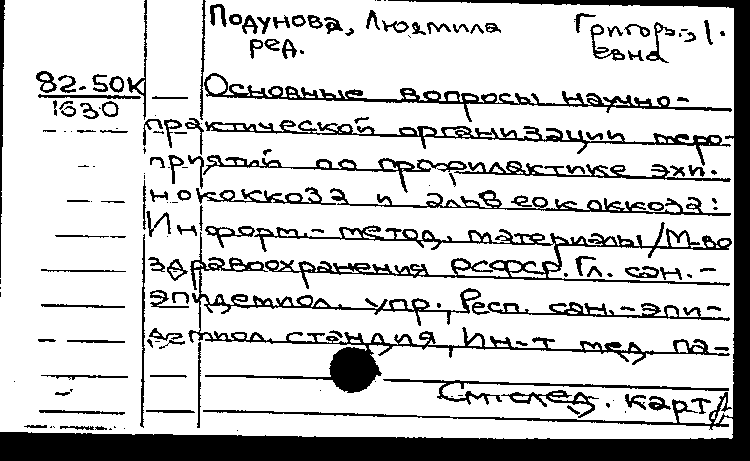 Подунова, Людмила Григорь-
ред. евна
82-50К Основные вопросы научно-
1630
практической организации меро-
приятий по профилактике эхи-
нококкоза и альвеококкоза:
Информ.- метод. материалы/М-во
здравоохранения РСФСР. Гл. сан.-
эпидемиол. упр., Респ. сан.-эпи-
демиол. станция, Ин-т мед. па-
См. след. карт